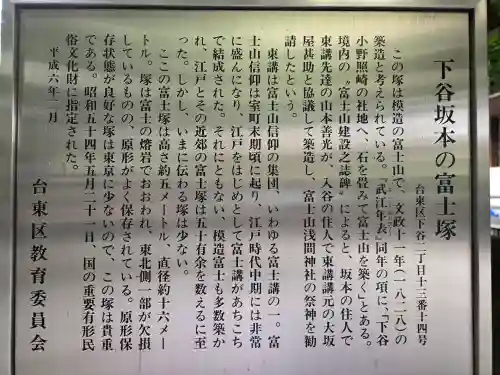 下谷坂本の富士塚
台東区下谷二丁目十三番十四号
この塚は模造の富士山で、文政十一年(一八二八)の
築造と考えられている。『武江年表』同年の項に、「下谷
小野照崎の社地へ、石を畳みて富士山を築く」とある。
境内の〝富士山建設之誌碑〟によると、坂本の住人で
東講先達の山本善光が、入谷の住人で東講講元の大坂
屋甚助と協議して築造し、富士山浅間神社の祭神を勧
請したという。
東講は富士山信仰の集団、いわゆる富士講の一。富
士山信仰は室町末期頃に起り、江戸時代中期には非常
に盛んになり、江戸をはじめとして富士講があちこち
で結成された。それにともない、模造富士も多数築か
れ、江戸とその近郊の富士塚は五十有余を数えるに至
った。しかし、いまに伝わる塚は少ない。
ここの富士塚は高さ約五メートル、直径約十六メー
トル。塚は富士の熔岩でおおわれ、東北側一部が欠損
しているものの、原形がよく保存されている。原形保
存状態が良好な塚は東京に少ないので、この塚は貴重
である。昭和五十四年五月二十一日、国の重要有形民
俗文化財に指定された。
平成六年二月
台東区教育委員会